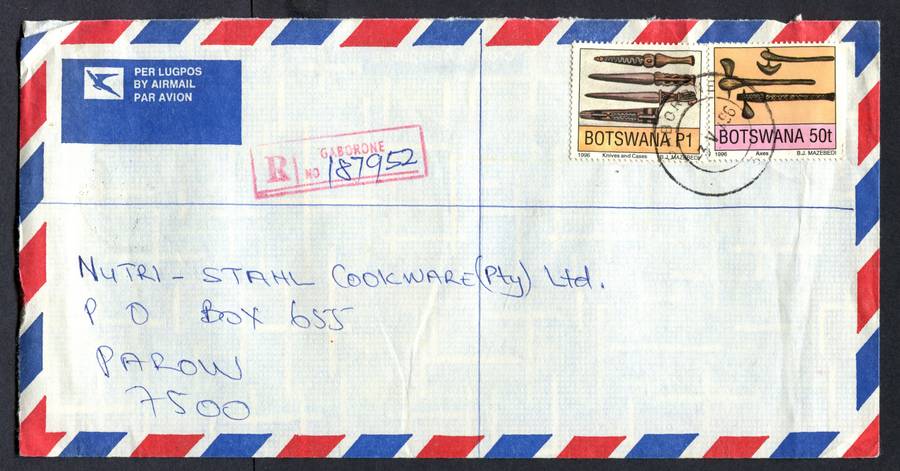 PER LUGPOS
BY AIRMAIL
PAR AVION
R
GABORONE
NO 187952
BOTSWANA P1
1996 Knives and Cases B.J. MAZEBEDI
BOTSWANA 50t
1996 Axes B.J. MAZEBEDI
NUTRI - STAHL COOKWARE (Pty) Ltd.
P O BOX 655
PAROW
7500